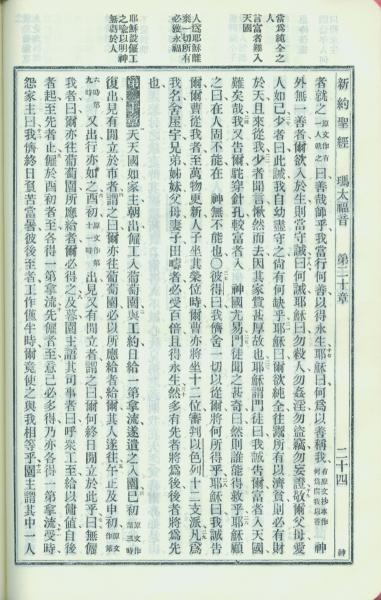 新約聖經 瑪太福音 第二十章 二十四 神
當為純全之
言富者難入
天國
人為耶穌能
棄一切所有
必獲永福
耶穌設傭工
之喻以明神
無虧於人
者就之原文作有一人就之曰善哉師乎我當行何善以得永生耶穌曰何為以善稱我有原文抄本作何為問我以善 神
外無一善者爾欲入於生則當守誡曰何誡耶穌曰勿殺人勿姦淫勿盜竊勿妄證敬爾父母愛
人如己少者曰此誡我自幼盡守之尚有何缺乎耶穌曰爾欲純全往鬻所有以濟貧則必有財
於天且來從我少者聞言愀然而去因其家貲甚厚故也耶穌謂門徒曰我誠告爾富者入天國
難矣哉我又告爾駝穿針孔較富者入 神國尤易門徒聞之甚奇曰然則誰能得救乎耶穌顧
之曰在人固不能在 神無不能也彼得曰我儕舍一切以從爾將何所得乎耶穌曰我誠告
爾爾曹從我者至萬物更新人子坐其榮位時爾曹亦將坐十二位審判以色列十二支派凡為
我名舍屋宇兄弟姊妹父母妻子田疇者必受百倍且得永生然多有先者將為後後者將為先
也
第二十章 天國如家主朝出僱工入葡萄園與工約日給一第拿流遂遣之入園巳初原文作第三時
復出見有閒立於市者謂之曰爾亦往葡萄園必以所應給者給爾其人遂往午正及申初原文作第
六時第九時又出行亦如之酉初原文作第十一時出見又有閒立者謂之曰爾何終日閒立於此乎曰無僱
我者曰爾亦往葡萄園所應給者爾必得之及暮園主語其司事者曰呼眾工至給以傭值自後
者起至先者止僱於酉初者至各得一第拿流先僱者至意己必多得乃亦各得一第拿流受時
怨家主曰我儕終日負苦當暑彼後至者工作僅半時爾竟使之與我相等乎園主謂其中一人